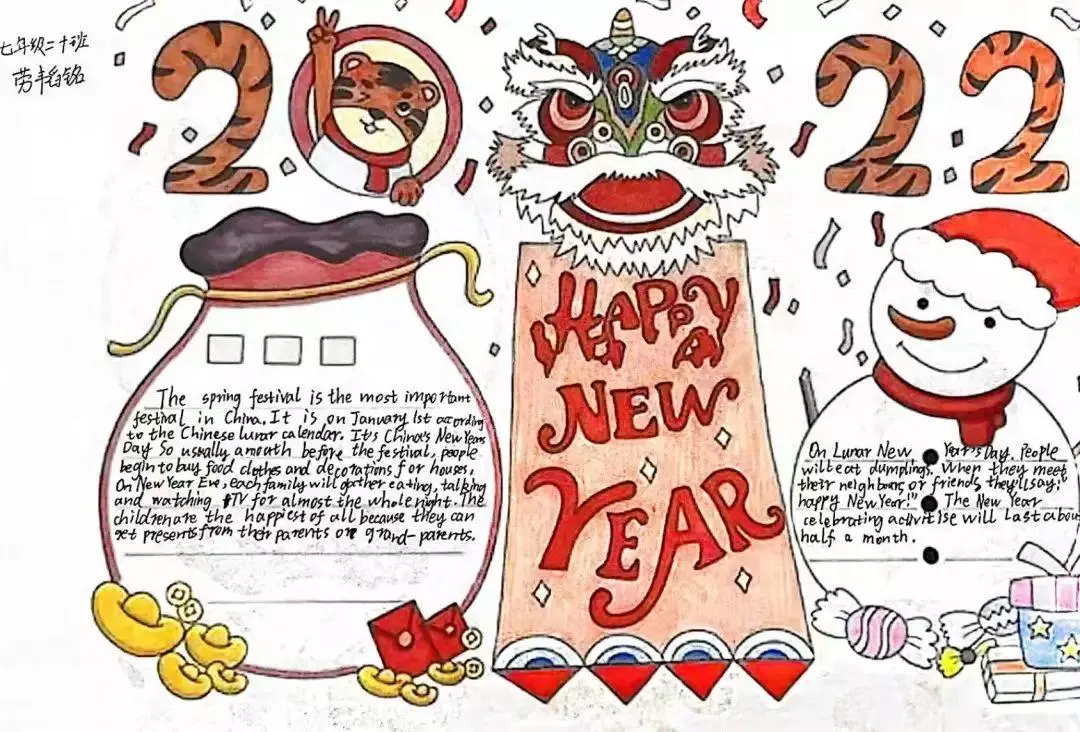 七年级二十班
劳韬铭
2022
HAPPY
NEW
YEAR
The spring festival is the most important
festival in China. It is on January 1st according
to the Chinese lunar calendar. It's China's New Years
Day So usually a mouth before the festival, people
begin to buy food clothes and decorations for houses.
On New Year Eve, each family will gather eating, talking
and watching TV for almost the whole night. The
children are the happiest of all because they can
get presents from their parents or grand-parents.
On Lunar New Year's Day. People
will eat dumplings. When they meet
their neighbours or friends, they'll say:"
happy New Year!" The New Year
celebrating activitise will last about
half a month.